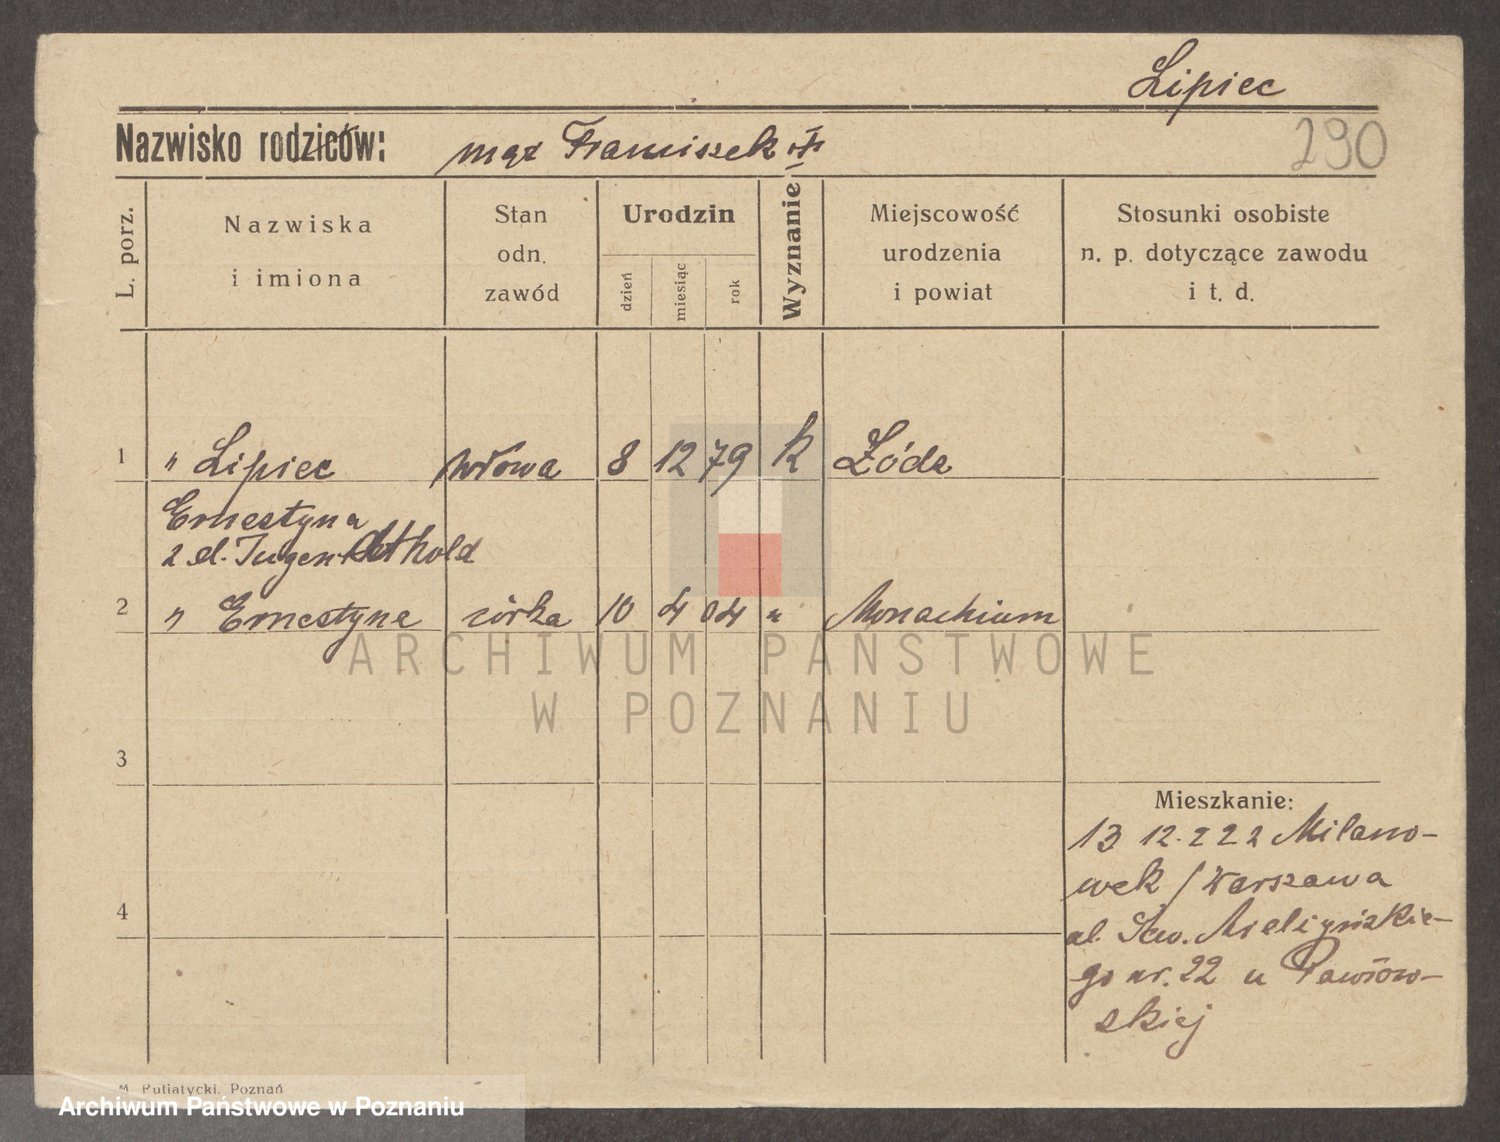 Lipiec
290
Nazwisko rodziców: mąż Franciszek
L. porz.
Nazwiska
i imiona
Stan
odn.
zawód
Urodzin
dzień
miesiąc
rok
Wyznanie
Miejscowość
urodzenia
i powiat
Stosunki osobiste
n. p. dotyczące zawodu
i t. d.
1 " Lipiec wdowa 8 12 79 k Łódz
Ernestyna
2 d.
2 " Ernestyne córka 10 4 04 " Monachium
ARCHIWUM PAŃSTWOWE
W POZNANIU
3
Mieszkanie:
13 12. 222 Milano-
wek / Warszawa
4
ul. Mielżyńskie-
go nr. 22 u Pawłow-
skiej
M. Putiatycki, Poznań
Archiwum Państwowe w Poznaniu